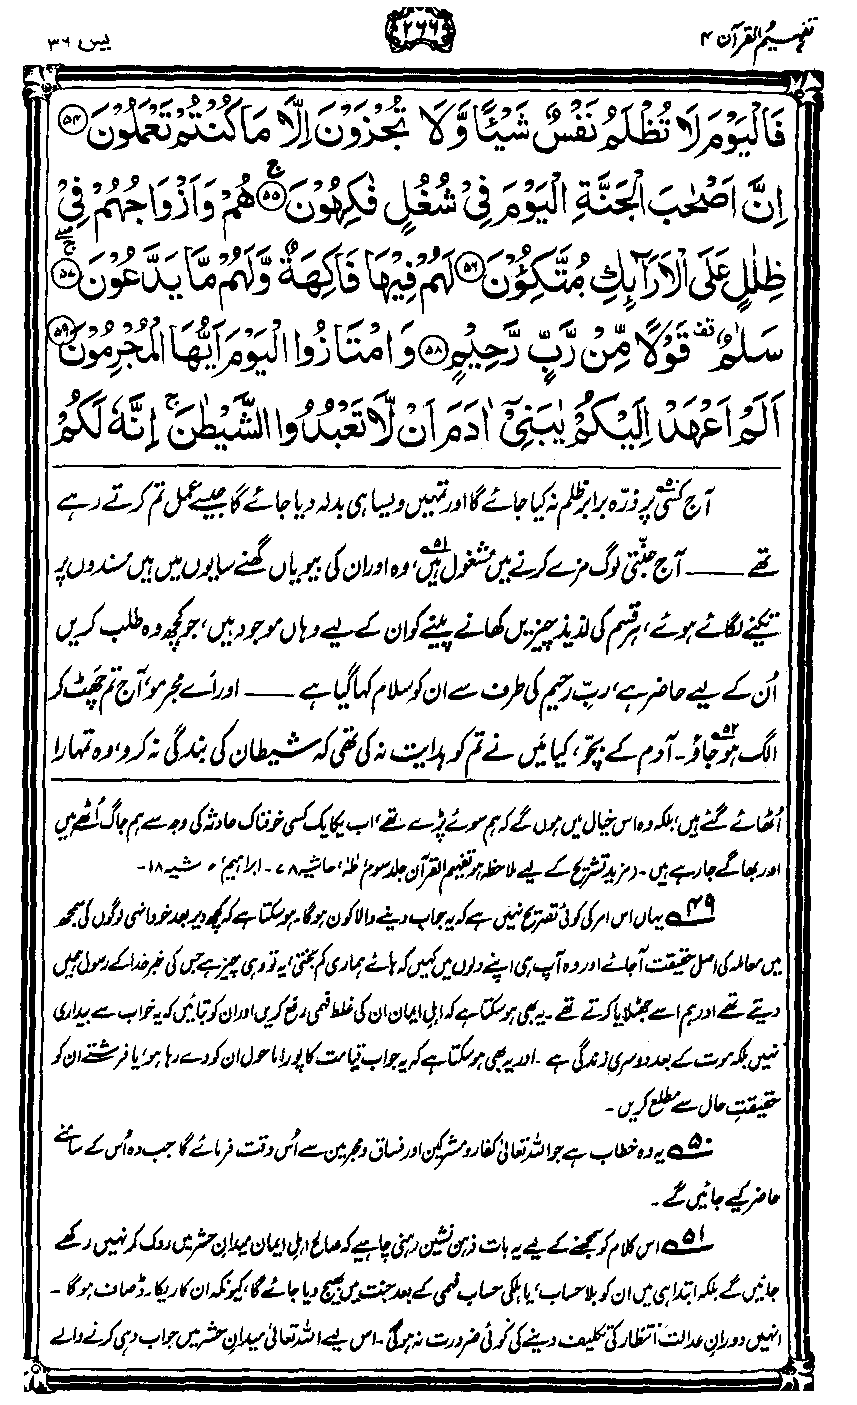 تفہیم القرآن ۴
۲۶۶
یٰس ۳۶
فَالْيَوْمَ لَا تُظْلَمُ نَفْسٌ شَيْئًا وَّلَا تُجْزَوْنَ اِلَّا مَا كُنْتُمْ تَعْمَلُوْنَ ﴿۵۴﴾
اِنَّ اَصْحٰبَ الْجَنَّةِ الْيَوْمَ فِيْ شُغُلٍ فٰكِهُوْنَ ﴿۵۵﴾ۚ هُمْ وَاَزْوَاجُهُمْ فِيْ
ظِلٰلٍ عَلَى الْاَرَآئِكِ مُتَّكِـُٔوْنَ ﴿۵۶﴾ لَهُمْ فِيْهَا فَاكِهَةٌ وَّلَهُمْ مَّا يَدَّعُوْنَ ﴿۵۷﴾ۚ
سَلٰمٌ قف قَوْلًا مِّنْ رَّبٍّ رَّحِيْمٍ ﴿۵۸﴾ وَامْتَازُوا الْيَوْمَ اَيُّهَا الْمُجْرِمُوْنَ ﴿۵۹﴾
اَلَمْ اَعْهَدْ اِلَيْكُمْ يٰبَنِيْٓ اٰدَمَ اَنْ لَّا تَعْبُدُوا الشَّيْطٰنَ ۚ اِنَّهٗ لَكُمْ
آج کسی۵۰ پر ذرّہ برابر ظلم نہ کیا جائے گا اور تمہیں ویسا ہی بدلہ دیا جائے گا جیسے عمل تم کرتے رہے
تھے ــــــ آج جنّتی لوگ مزے کرنے میں مشغول ہیں۵۱، وہ اور ان کی بیویاں گھنے سایوں میں ہیں مسندوں پر
تکیے لگائے ہوئے، ہر قسم کی لذیذ چیزیں کھانے پینے کو ان کے لیے وہاں موجود ہیں، جو کچھ وہ طلب کریں
اُن کے لیے حاضر ہے، ربِّ رحیم کی طرف سے ان کو سلام کہا گیا ہے ــــــ اور اَے مجرمو، آج تم چَھٹ کر
الگ ہو جاؤ۵۲۔ آدم کے بچّو، کیا میں نے تم کو ہدایت نہ کی تھی کہ شیطان کی بندگی نہ کرو، وہ تمہارا
اُٹھائے گئے ہیں، بلکہ وہ اس خیال میں ہوں گے کہ ہم سوئے پڑے تھے، اب یکایک کسی خوفناک حادثہ کی وجہ سے ہم جاگ اُٹھے ہیں
اور بھاگے جا رہے ہیں۔ (مزید تشریح کے لیے ملاحظہ ہو تفہیم القرآن جلد سوم، طٰہٰ، حاشیہ ۷۸۔ ابراہیم، حاشیہ ۱۸۔
۴۹ یہاں اس امر کی کوئی تصریح نہیں ہے کہ یہ جواب دینے والا کون ہوگا۔ ہو سکتا ہے کہ کچھ دیر بعد خود انہی لوگوں کی سمجھ
میں معاملہ کی اصل حقیقت آ جائے اور وہ آپ ہی اپنے دلوں میں کہیں کہ ہائے ہماری کم بختی، یہ تو وہی چیز ہے جس کی خبر خدا کے رسول ہمیں
دیتے تھے اور ہم اسے جھٹلایا کرتے تھے۔ یہ بھی ہو سکتا ہے کہ اہلِ ایمان ان کی غلط فہمی رفع کریں اور ان کو بتائیں کہ یہ خواب سے بیداری
نہیں بلکہ موت کے بعد دوسری زندگی ہے۔ اور یہ بھی ہو سکتا ہے کہ یہ جواب قیامت کا پورا ماحول ان کو دے رہا ہو، یا فرشتے ان کو
حقیقتِ حال سے مطلع کریں۔
۵۰ یہ وہ خطاب ہے جو اللہ تعالیٰ کفار و مشرکین اور فساق و مجرمین سے اُس وقت فرمائے گا جب وہ اُس کے سامنے
حاضر کیے جائیں گے۔
۵۱ اس کلام کو سمجھنے کے لیے یہ بات ذہن نشین رہنی چاہیے کہ صالح اہلِ ایمان میدانِ حشر میں روک کر نہیں رکھے
جائیں گے بلکہ ابتدا ہی میں ان کو بلا حساب، یا ہلکی حساب فہمی کے بعد جنت میں بھیج دیا جائے گا، کیونکہ ان کا ریکارڈ صاف ہوگا۔
انہیں دورانِ عدالت انتظار کی تکلیف دینے کی کوئی ضرورت نہ ہوگی۔ اس لیے اللہ تعالیٰ میدانِ حشر میں جواب دہی کرنے والے